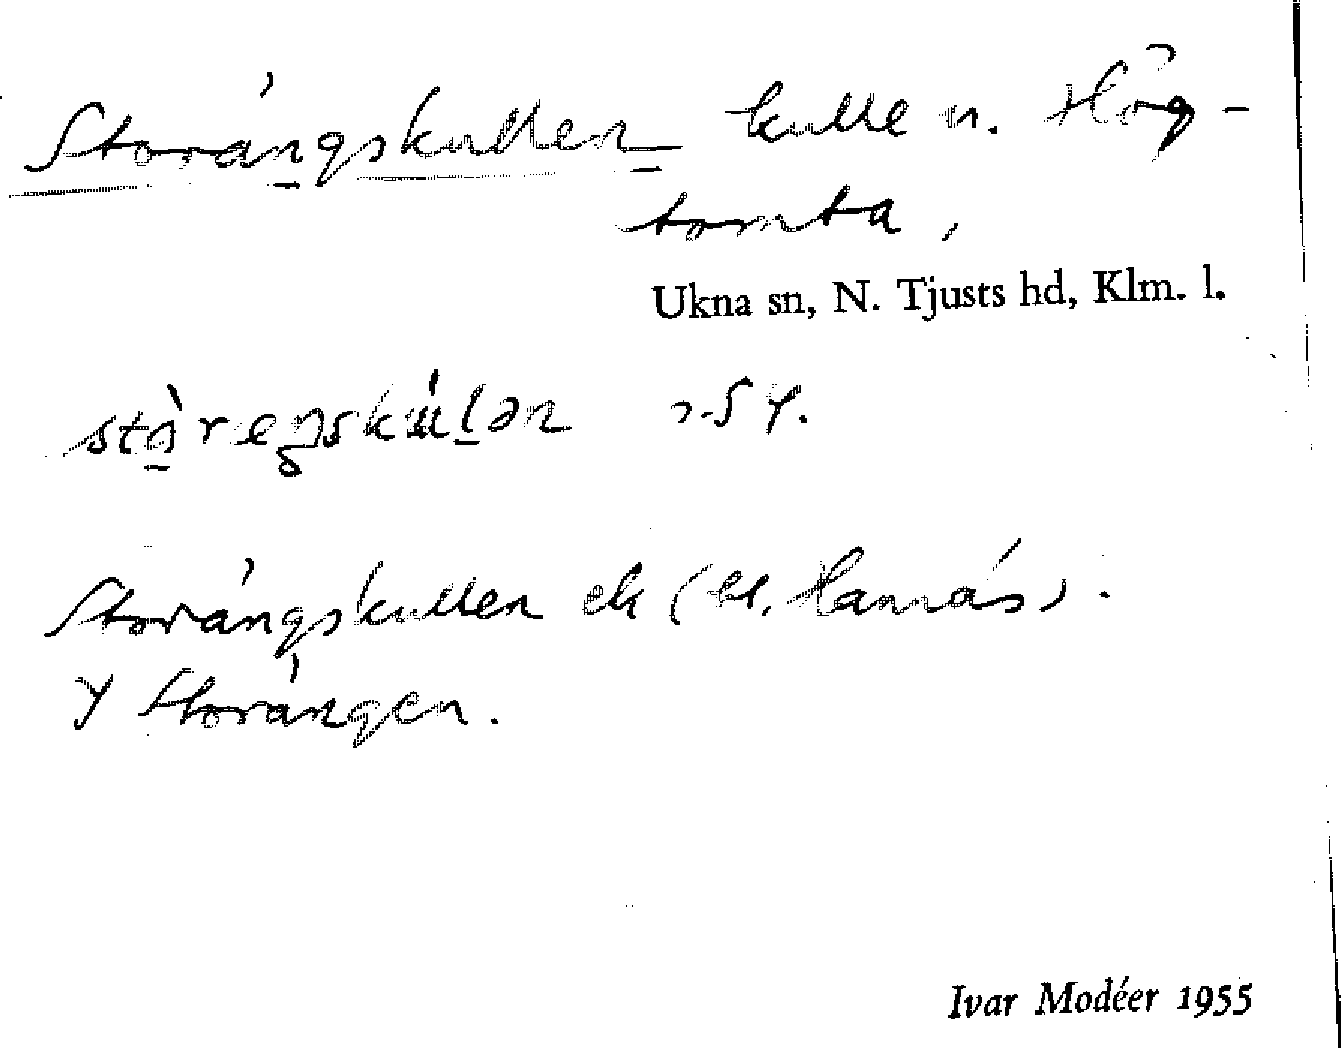 Storängskullen kulle n. Hög-
tomta,
Ukna sn, N. Tjusts hd, Klm. l.
Storängskullen ek (kl. Hamrås).
Y Storängen.
Ivar Modéer 1955